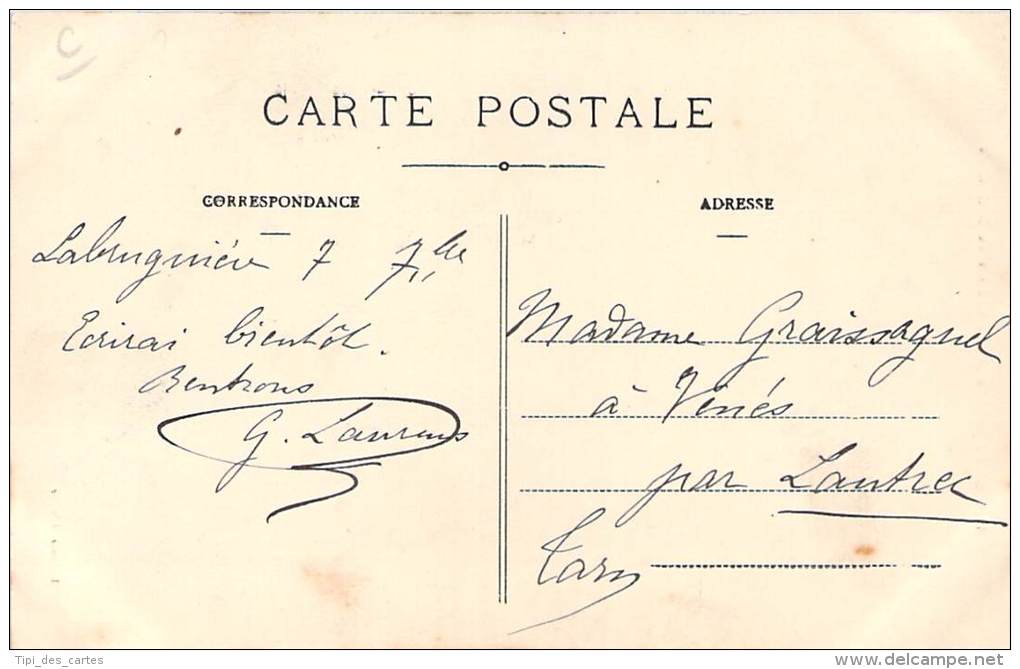 C
CARTE POSTALE
CORRESPONDANCE
Labruguière 7 7bre
Ecrirai bientôt.
Rentrons
G. Laurens
ADRESSE
Madame Graissaguel
à Vénès
par Lautrec
Tarn
Tipi_des_cartes
delcampe.net